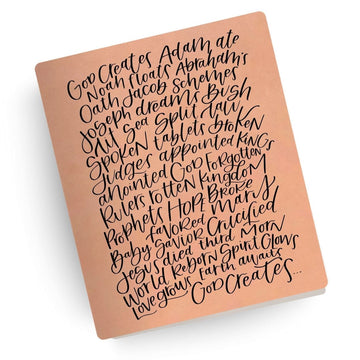 God Creates Adam ate
Noah floats Abraham's
Oath Jacob Schemes
Joseph dreams Bush
All Sea Split Law
Spoken tablets Broken
Judges appointed Kings
anointed God Forgotten
Rulers rotten Kingdom
Broke
Prophets Hope Mary
favored
Baby Savior Crucified
Jesus died third Morn
World Reborn Spirit Glows
Love grows Earth awaits
God Creates...